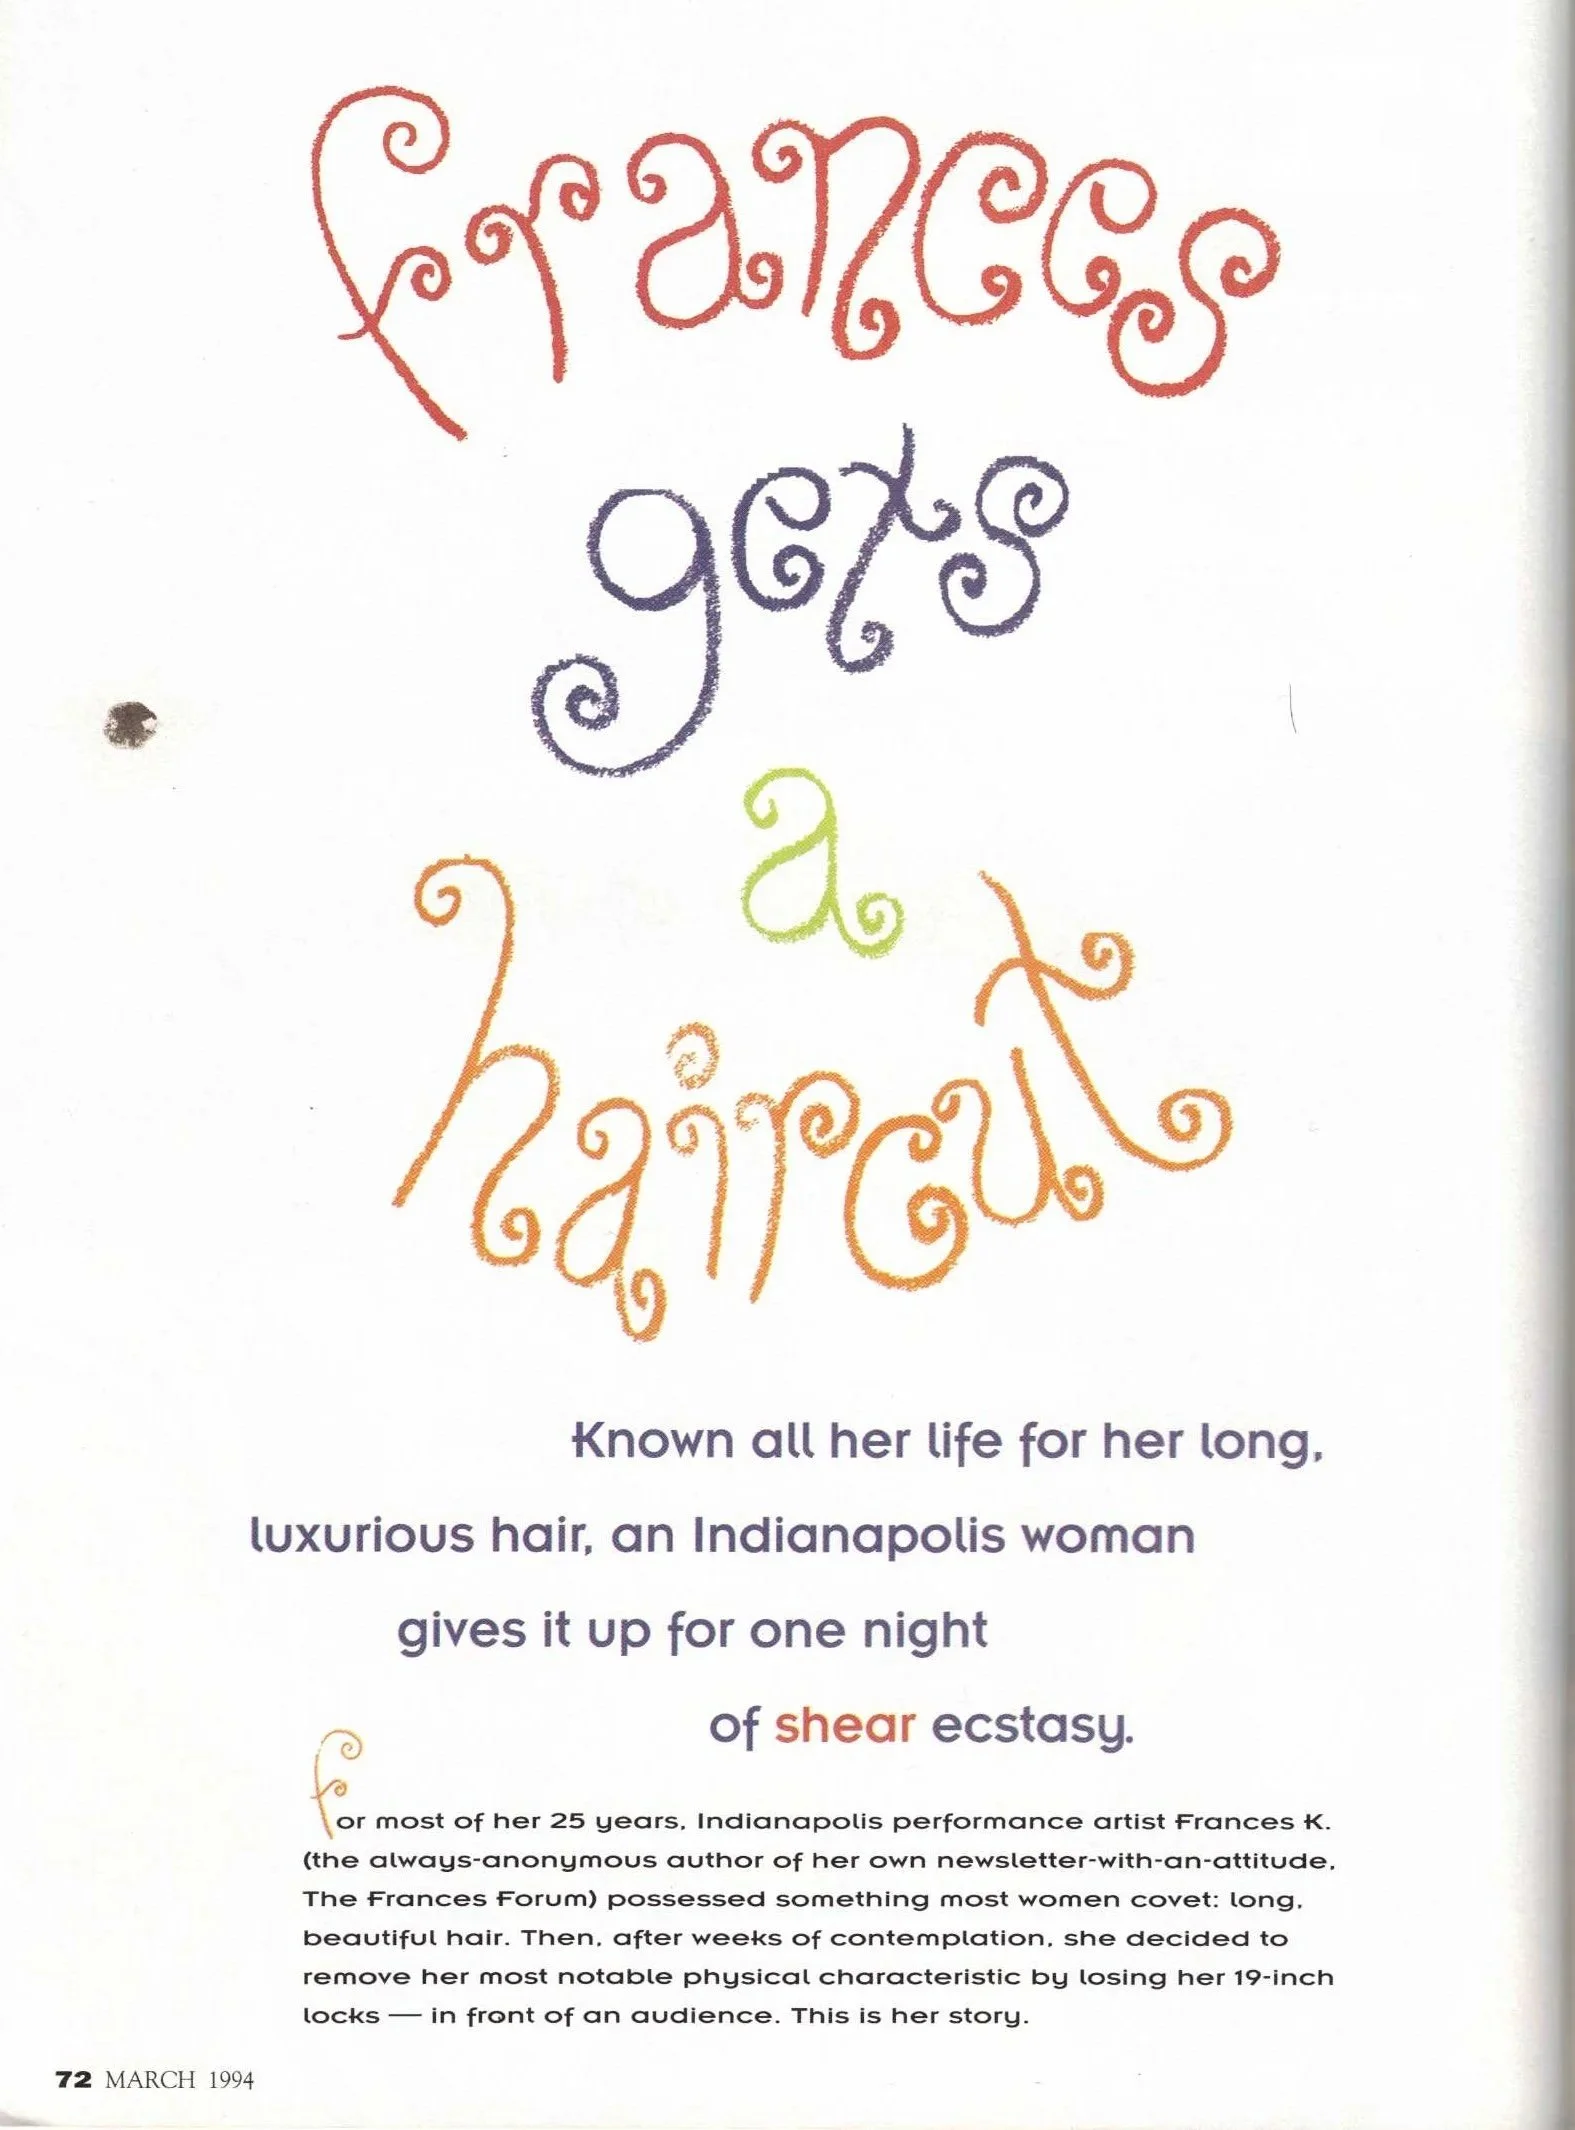 frances
gets
a
haircut
Known all her life for her long,
luxurious hair, an Indianapolis woman
gives it up for one night
of shear ecstasy.
For most of her 25 years, Indianapolis performance artist Frances K.
(the always-anonymous author of her own newsletter-with-an-attitude,
The Frances Forum) possessed something most women covet: long,
beautiful hair. Then, after weeks of contemplation, she decided to
remove her most notable physical characteristic by losing her 19-inch
locks — in front of an audience. This is her story.
72 MARCH 1994